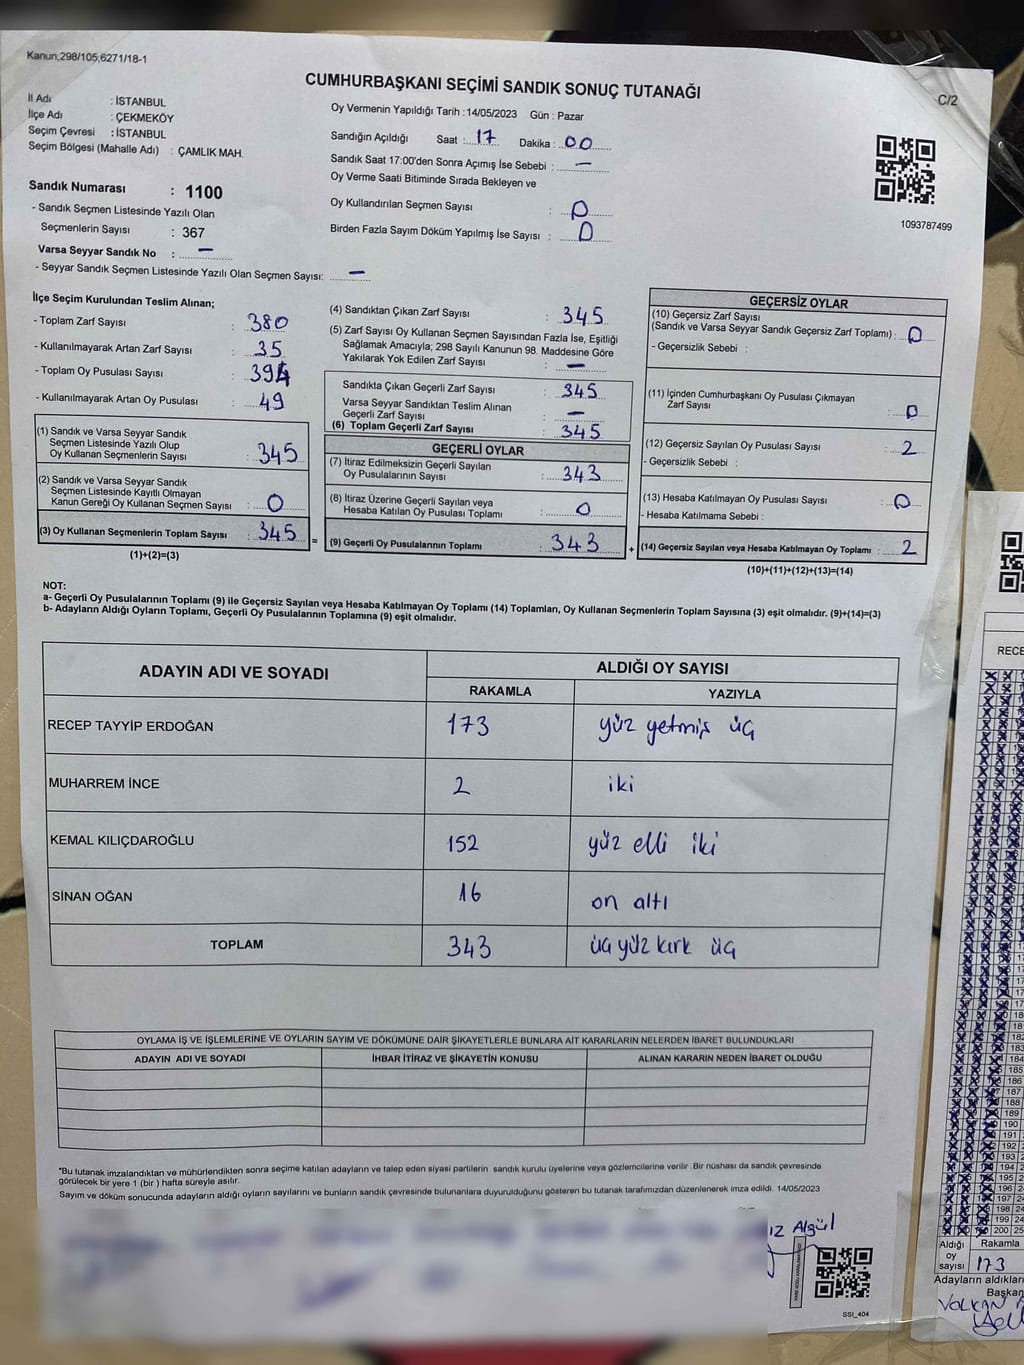 Kanun;298/105;6271/18-1
CUMHURBAŞKANI SEÇİMİ SANDIK SONUÇ TUTANAĞI
C/2
İl Adı : İSTANBUL
İlçe Adı : ÇEKMEKÖY
Seçim Çevresi : İSTANBUL
Seçim Bölgesi (Mahalle Adı) : ÇAMLIK MAH.
Sandık Numarası : 1100
- Sandık Seçmen Listesinde Yazılı Olan
Seçmenlerin Sayısı : 367
Varsa Seyyar Sandık No : –
- Seyyar Sandık Seçmen Listesinde Yazılı Olan Seçmen Sayısı: –
Oy Vermenin Yapıldığı Tarih : 14/05/2023 Gün : Pazar
Sandığın Açıldığı Saat : 17 Dakika : 00
Sandık Saat 17:00'den Sonra Açımış İse Sebebi : –
Oy Verme Saati Bitiminde Sırada Bekleyen ve
Oy Kullandırılan Seçmen Sayısı : 0
Birden Fazla Sayım Döküm Yapılmış İse Sayısı : 0
1093787499
İlçe Seçim Kurulundan Teslim Alınan;
- Toplam Zarf Sayısı : 380
- Kullanılmayarak Artan Zarf Sayısı : 35
- Toplam Oy Pusulası Sayısı : 394
- Kullanılmayarak Artan Oy Pusulası : 49
(1) Sandık ve Varsa Seyyar Sandık
Seçmen Listesinde Yazılı Olup
Oy Kullanan Seçmenlerin Sayısı : 345
(2) Sandık ve Varsa Seyyar Sandık
Seçmen Listesinde Kayıtlı Olmayan
Kanun Gereği Oy Kullanan Seçmen Sayısı : 0
(3) Oy Kullanan Seçmenlerin Toplam Sayısı : 345
(1)+(2)=(3)
=
(4) Sandıktan Çıkan Zarf Sayısı : 345
(5) Zarf Sayısı Oy Kullanan Seçmen Sayısından Fazla İse, Eşitliği
Sağlamak Amacıyla; 298 Sayılı Kanunun 98. Maddesine Göre
Yakılarak Yok Edilen Zarf Sayısı : –
Sandıkta Çıkan Geçerli Zarf Sayısı : 345
Varsa Seyyar Sandıktan Teslim Alınan
Geçerli Zarf Sayısı : –
(6) Toplam Geçerli Zarf Sayısı : 345
GEÇERLİ OYLAR
(7) İtiraz Edilmeksizin Geçerli Sayılan
Oy Pusulalarının Sayısı : 343
(8) İtiraz Üzerine Geçerli Sayılan veya
Hesaba Katılan Oy Pusulası Toplamı : 0
(9) Geçerli Oy Pusulalarının Toplamı : 343
+
GEÇERSİZ OYLAR
(10) Geçersiz Zarf Sayısı
(Sandık ve Varsa Seyyar Sandık Geçersiz Zarf Toplamı) : 0
- Geçersizlik Sebebi :
(11) İçinden Cumhurbaşkanı Oy Pusulası Çıkmayan
Zarf Sayısı : 0
(12) Geçersiz Sayılan Oy Pusulası Sayısı : 2
- Geçersizlik Sebebi :
(13) Hesaba Katılmayan Oy Pusulası Sayısı : 0
- Hesaba Katılmama Sebebi :
(14) Geçersiz Sayılan veya Hesaba Katılmayan Oy Toplamı : 2
(10)+(11)+(12)+(13)=(14)
NOT:
a- Geçerli Oy Pusulalarının Toplamı (9) ile Geçersiz Sayılan veya Hesaba Katılmayan Oy Toplamı (14) Toplamları, Oy Kullanan Seçmenlerin Toplam Sayısına (3) eşit olmalıdır. (9)+(14)=(3)
b- Adayların Aldığı Oyların Toplamı, Geçerli Oy Pusulalarının Toplamına (9) eşit olmalıdır.
ADAYIN ADI VE SOYADI ALDIĞI OY SAYISI
RAKAMLA YAZIYLA
RECEP TAYYİP ERDOĞAN 173 yüz yetmiş üç
MUHARREM İNCE 2 iki
KEMAL KILIÇDAROĞLU 152 yüz elli iki
SİNAN OĞAN 16 on altı
TOPLAM 343 üç yüz kırk üç
OYLAMA İŞ VE İŞLEMLERİNE VE OYLARIN SAYIM VE DÖKÜMÜNE DAİR ŞİKAYETLERLE BUNLARA AİT KARARLARIN NELERDEN İBARET BULUNDUKLARI
ADAYIN ADI VE SOYADI İHBAR İTİRAZ VE ŞİKAYETİN KONUSU ALINAN KARARIN NEDEN İBARET OLDUĞU
"Bu tutanak imzalandıktan ve mühürlendikten sonra seçime katılan adayların ve talep eden siyasi partilerin sandık kurulu üyelerine veya gözlemcilerine verilir .Bir nüshası da sandık çevresinde
görülecek bir yere 1 (bir ) hafta süreyle asılır.
Sayım ve döküm sonucunda adayların aldığı oyların sayılarını ve bunların sandık çevresinde bulunanlara duyurulduğunu gösteren bu tutanak tarafımızdan düzenlenerek imza edildi. 14/05/2023
ız Algül
SSI_404
RECE
184
185
186
187
188
189
190
191
192
193
194
195
196
197
198
199
200
Aldığı
oy
sayısı
Rakamla
173
Adayların aldıkları
Başkan
VOLKAN